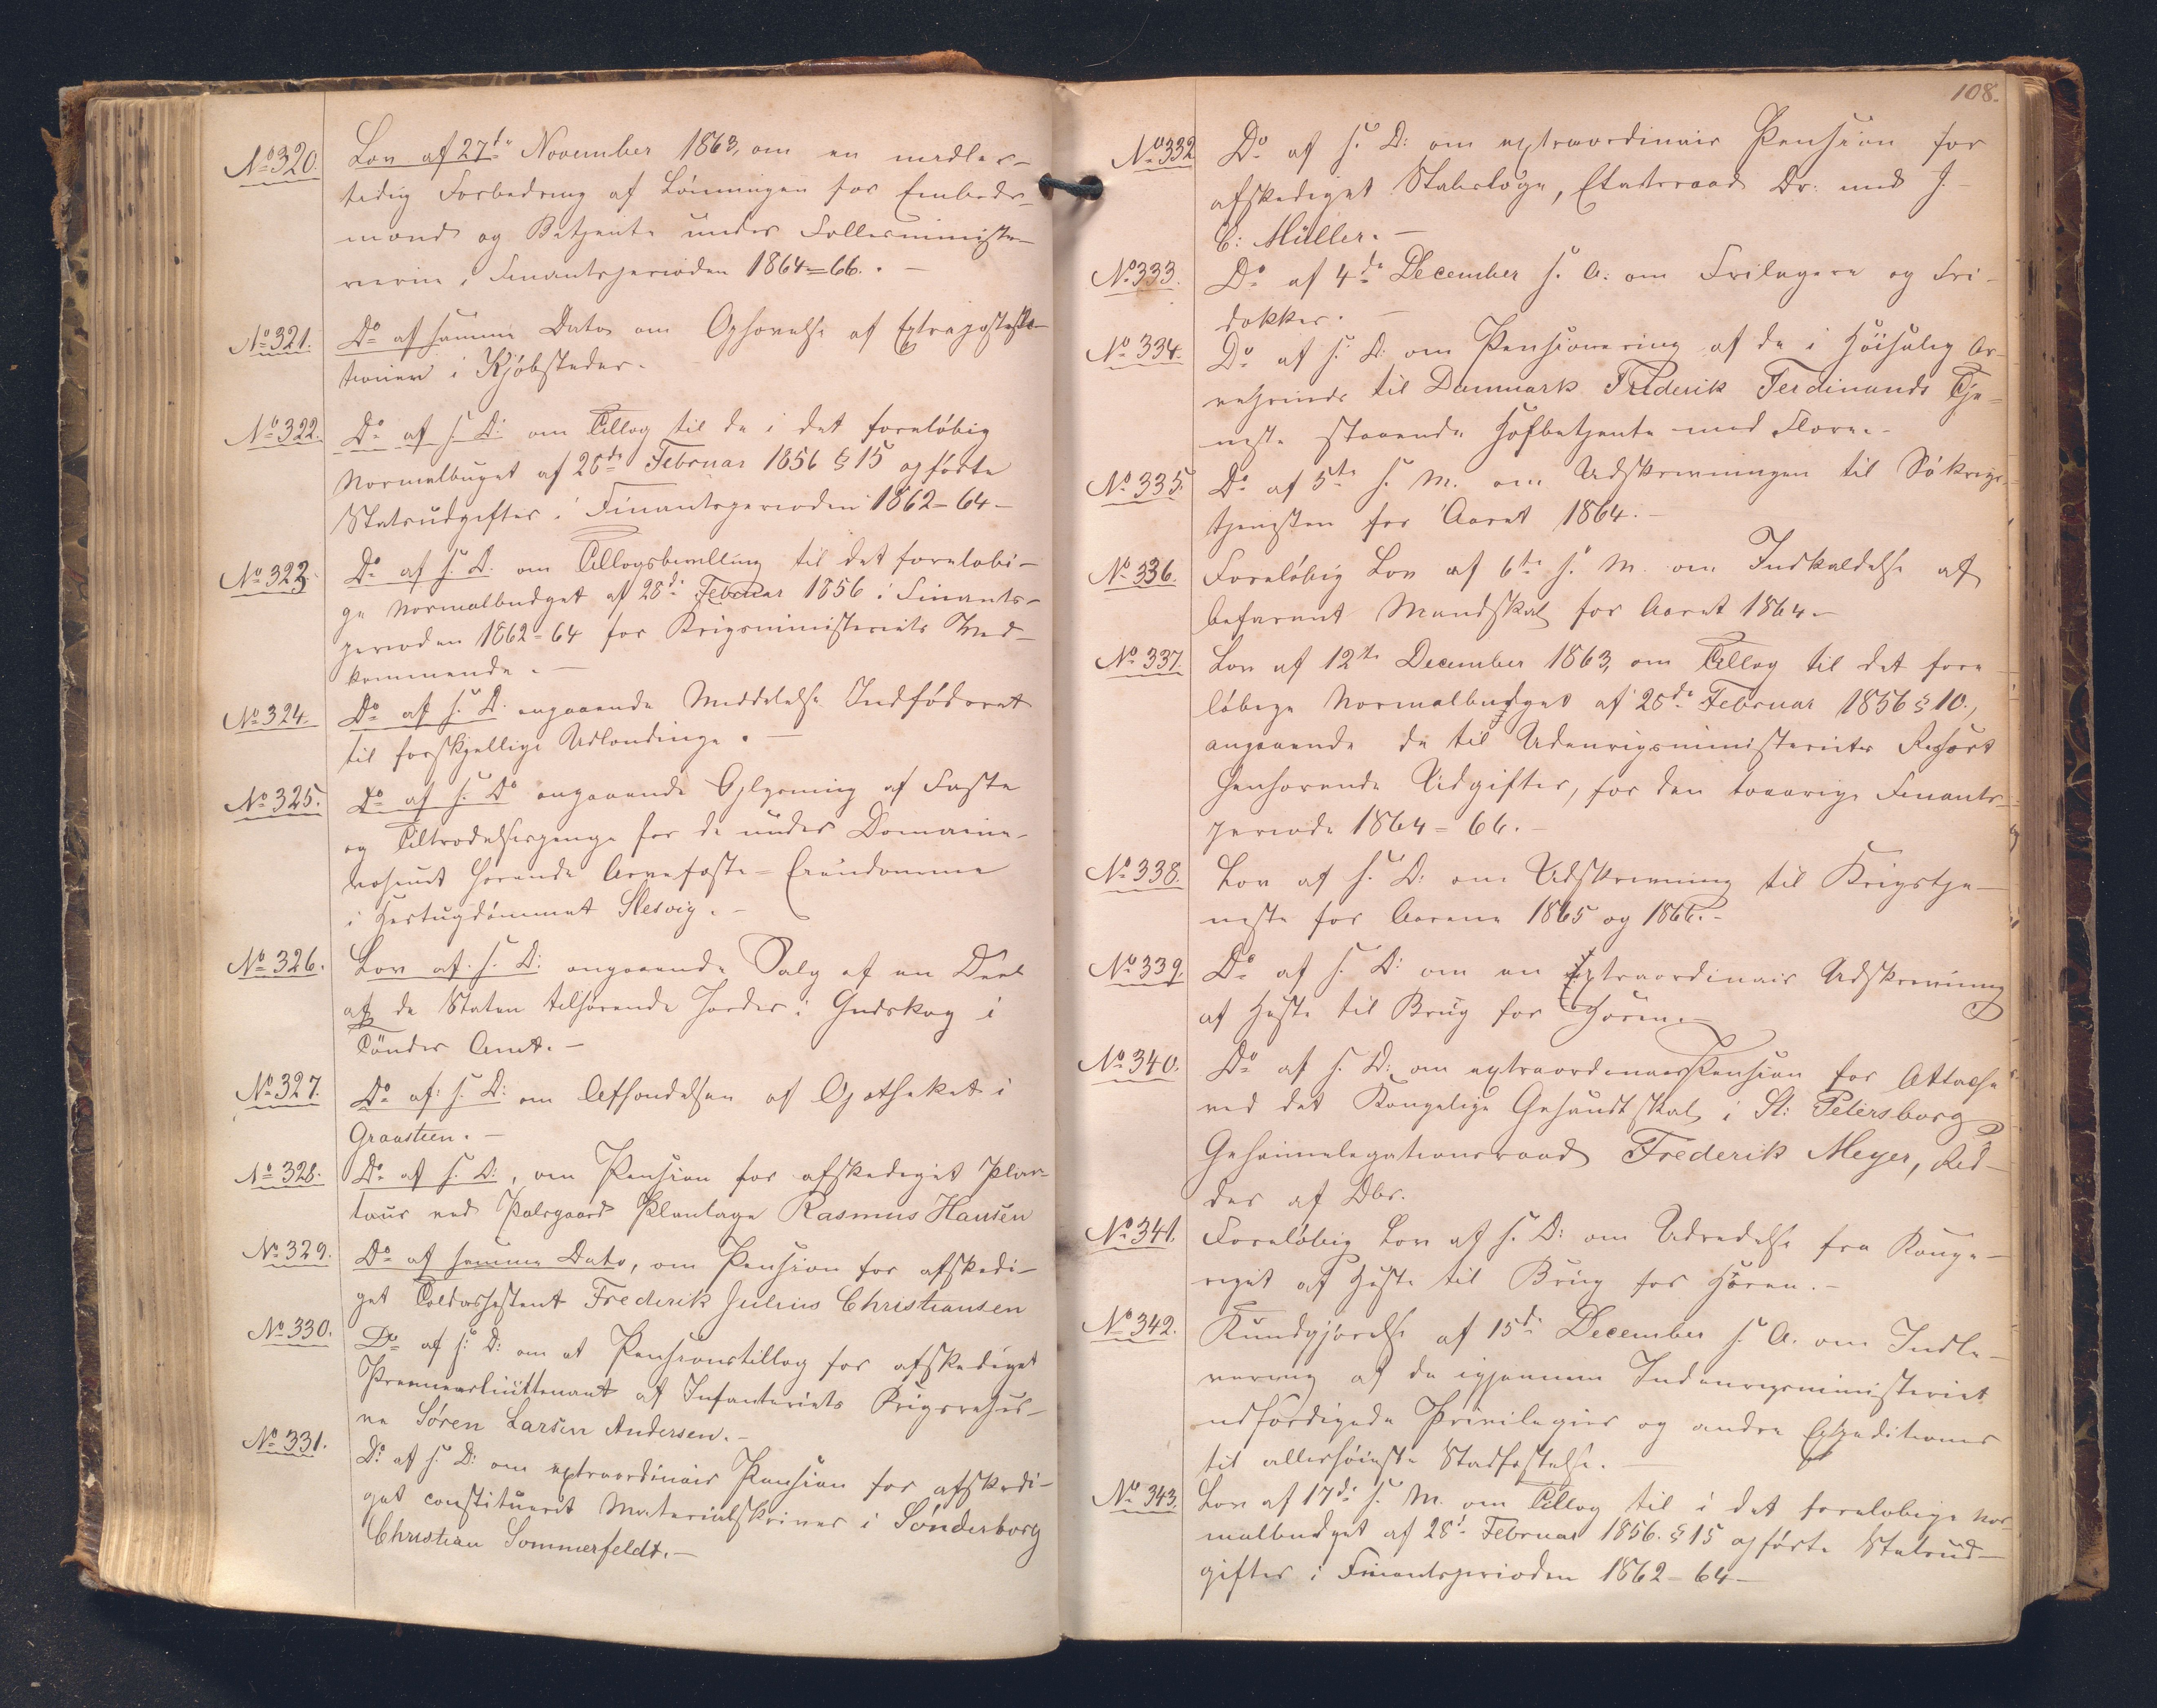 No 320. Lov af 27de November 1863, om en midler-
tidig Forbedring af Lønningen for Embeds-
mænd og Betjente under Fællesministe-
rierne, i Finantsperioden 1864=66. -
No 321. Do af samme Dato om Ophævelse af Extrapoststa-
tioner i Kjøbsteder.
No 322. Do af s. D: om Tillæg til de i det foreløbig
Normalbuget af 28de Februar 1856 § 15 opførte
Statsudgifter i Finantsperioden 1862-64-
No 323. Do af s. D. om Tillægsbevilling til det foreløbi-
ge Normalbudget af 28de Februar 1856 i Finants-
perioden 1862-64 for Krigsministeriets Ved-
kommende. -
No 324. Do af s. D. angaaende Meddelelse Indfødsret
til forskjellige Udlændinge. -
No 325. Do af s. Do angaaende Oplysning af Fæste
og Tiltrædelsespenge for de under Domaine-
væsenet hørende Arvefæste=Eiendomme
i Hertugdømmet Slesvig. -
No 326. Lov af s. D: angaaende Salg af en Deel
af de Staten tilhørende Jorder i Gudskog i
Tønder Amt. -
No 327. Do af s. D: om Afhændelsen af Apotheket i
Graasteen. -
No 328. Do af s. D:, om Pension for afskediget Plan-
teur ved Palsgaard Plantage Rasmus Hansen
No 329. Do af samme Dato, om Pension for afskedi-
get Toldassistent Frederik Julius Christiansen
No 330. Do af s: D: om et Pensionstillæg for afskediget
Premierlieuttenant af Infanteriets Krigsreser-
ve Søren Larsen Andersen. -
No 331. Do af s. D: om extraordinair Pension for afskedi-
get constitueret Materialskriver i Sønderborg
Christian Sommerfeldt. -
108.
No 332 Do af s. D: om extraordinair Pension for
afskediget Stabslæge, Etatsraad Dr: med J.
C: Müller. -
No 333. Do af 4de December s. A. om Frilagere og Fri-
dokker. -
No 334. Do af s. D: om Pensionering af de i Høisalig Ar-
veprinds til Danmark Frederik Ferdinands Tje-
neste staaende Hofbetjente med Flere. -
No 335. Do af 5te s. M. om Udskrivningen til Søkrigs-
tjenesten for Aaret 1864. -
No 336. Foreløbig Lov af 6te s. M. om Indkaldelse af
befarent Mandskab for Aaret 1864 -
No 337. Lov af 12te December 1863, om Tillæg til det fore-
løbige Normalbudget af 28de Februar 1856 § 10.,
angaaende de til Udenrigsministeriets Resort
henhørende Udgifter, for den toaarige Finants-
periode 1864=66. -
No 338. Lov af s. D: om Udskrivning til Krigstje-
neste for Aarene 1865 og 1866. -
No 339. Do af s. D: om en Extraordinair Udskrivning
af Heste til Brug for Hæren. -
No 340. Do af s. D: om extraordinair Pension for Attaché
ved det Kongelige Gesandtskab i St: Petersborg
Geheimelegationsraad Frederik Meyer, Rid-
der af Dbr.
No 341. Foreløbig Lov af s. D: om Udredelse fra Konge-
riget af Heste til Brug for Hæren. -
No 342. Kundgjørelse af 15de December s. A. om Indle-
vering af de igjennem Indenrigsministeriet
udfærdigede Privilegier og andre Expeditioner
til allerhøieste Stadfæstelse. -
No 343. Lov af 17de s. M. om Tillæg til i det foreløbige Nor-
malbudget af 28de Februar 1856. § 15 opførte Statsud-
gifter i Finantsperioden 1862-64-